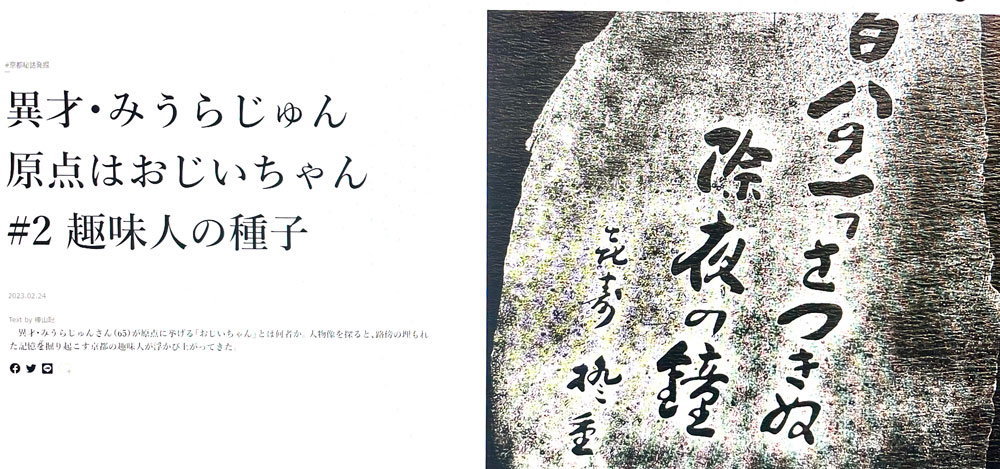 #京都秘話発掘
異才・みうらじゅん
原点はおじいちゃん
#2 趣味人の種子
2023.02.24
Text by 樺山聡
異才・みうらじゅんさん(65)が原点に挙げる「おじいちゃん」とは何者か。人物像を探ると、路傍の埋もれ
た記憶を掘り起こす京都の趣味人が浮かび上がってきた。
百八の一つ つきぬ
除夜の鐘
喜寿